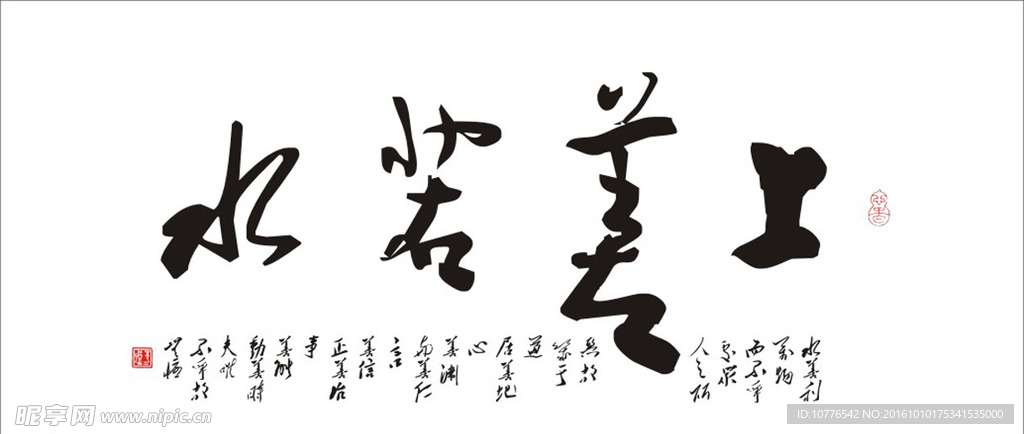 上善若水
水善利
萬物
而不争
處衆
人之所
惡故
幾于
道
居善地
心
善渊
与善仁
言
善信
正善治
事
善能
動善時
夫唯
不争故
昵享网 www.nipic.cn
ID:10776542 NO:20161010175341535000